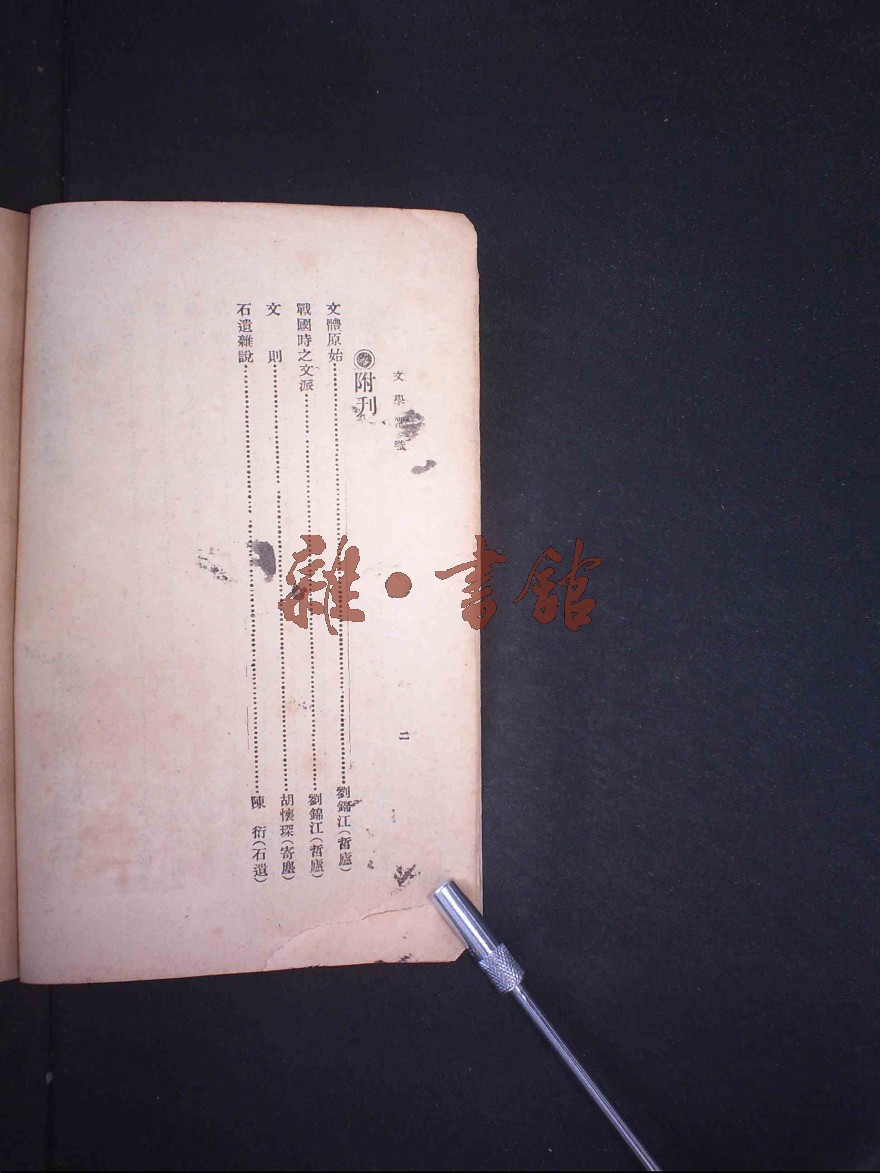 文學常識
二
附刊
文體原始……劉錦江(哲廬)
戰國時之文派……劉錦江(哲廬)
文　則……胡懷琛(寄塵)
石遺雜說……陳　衍(石遺)
雜·書館